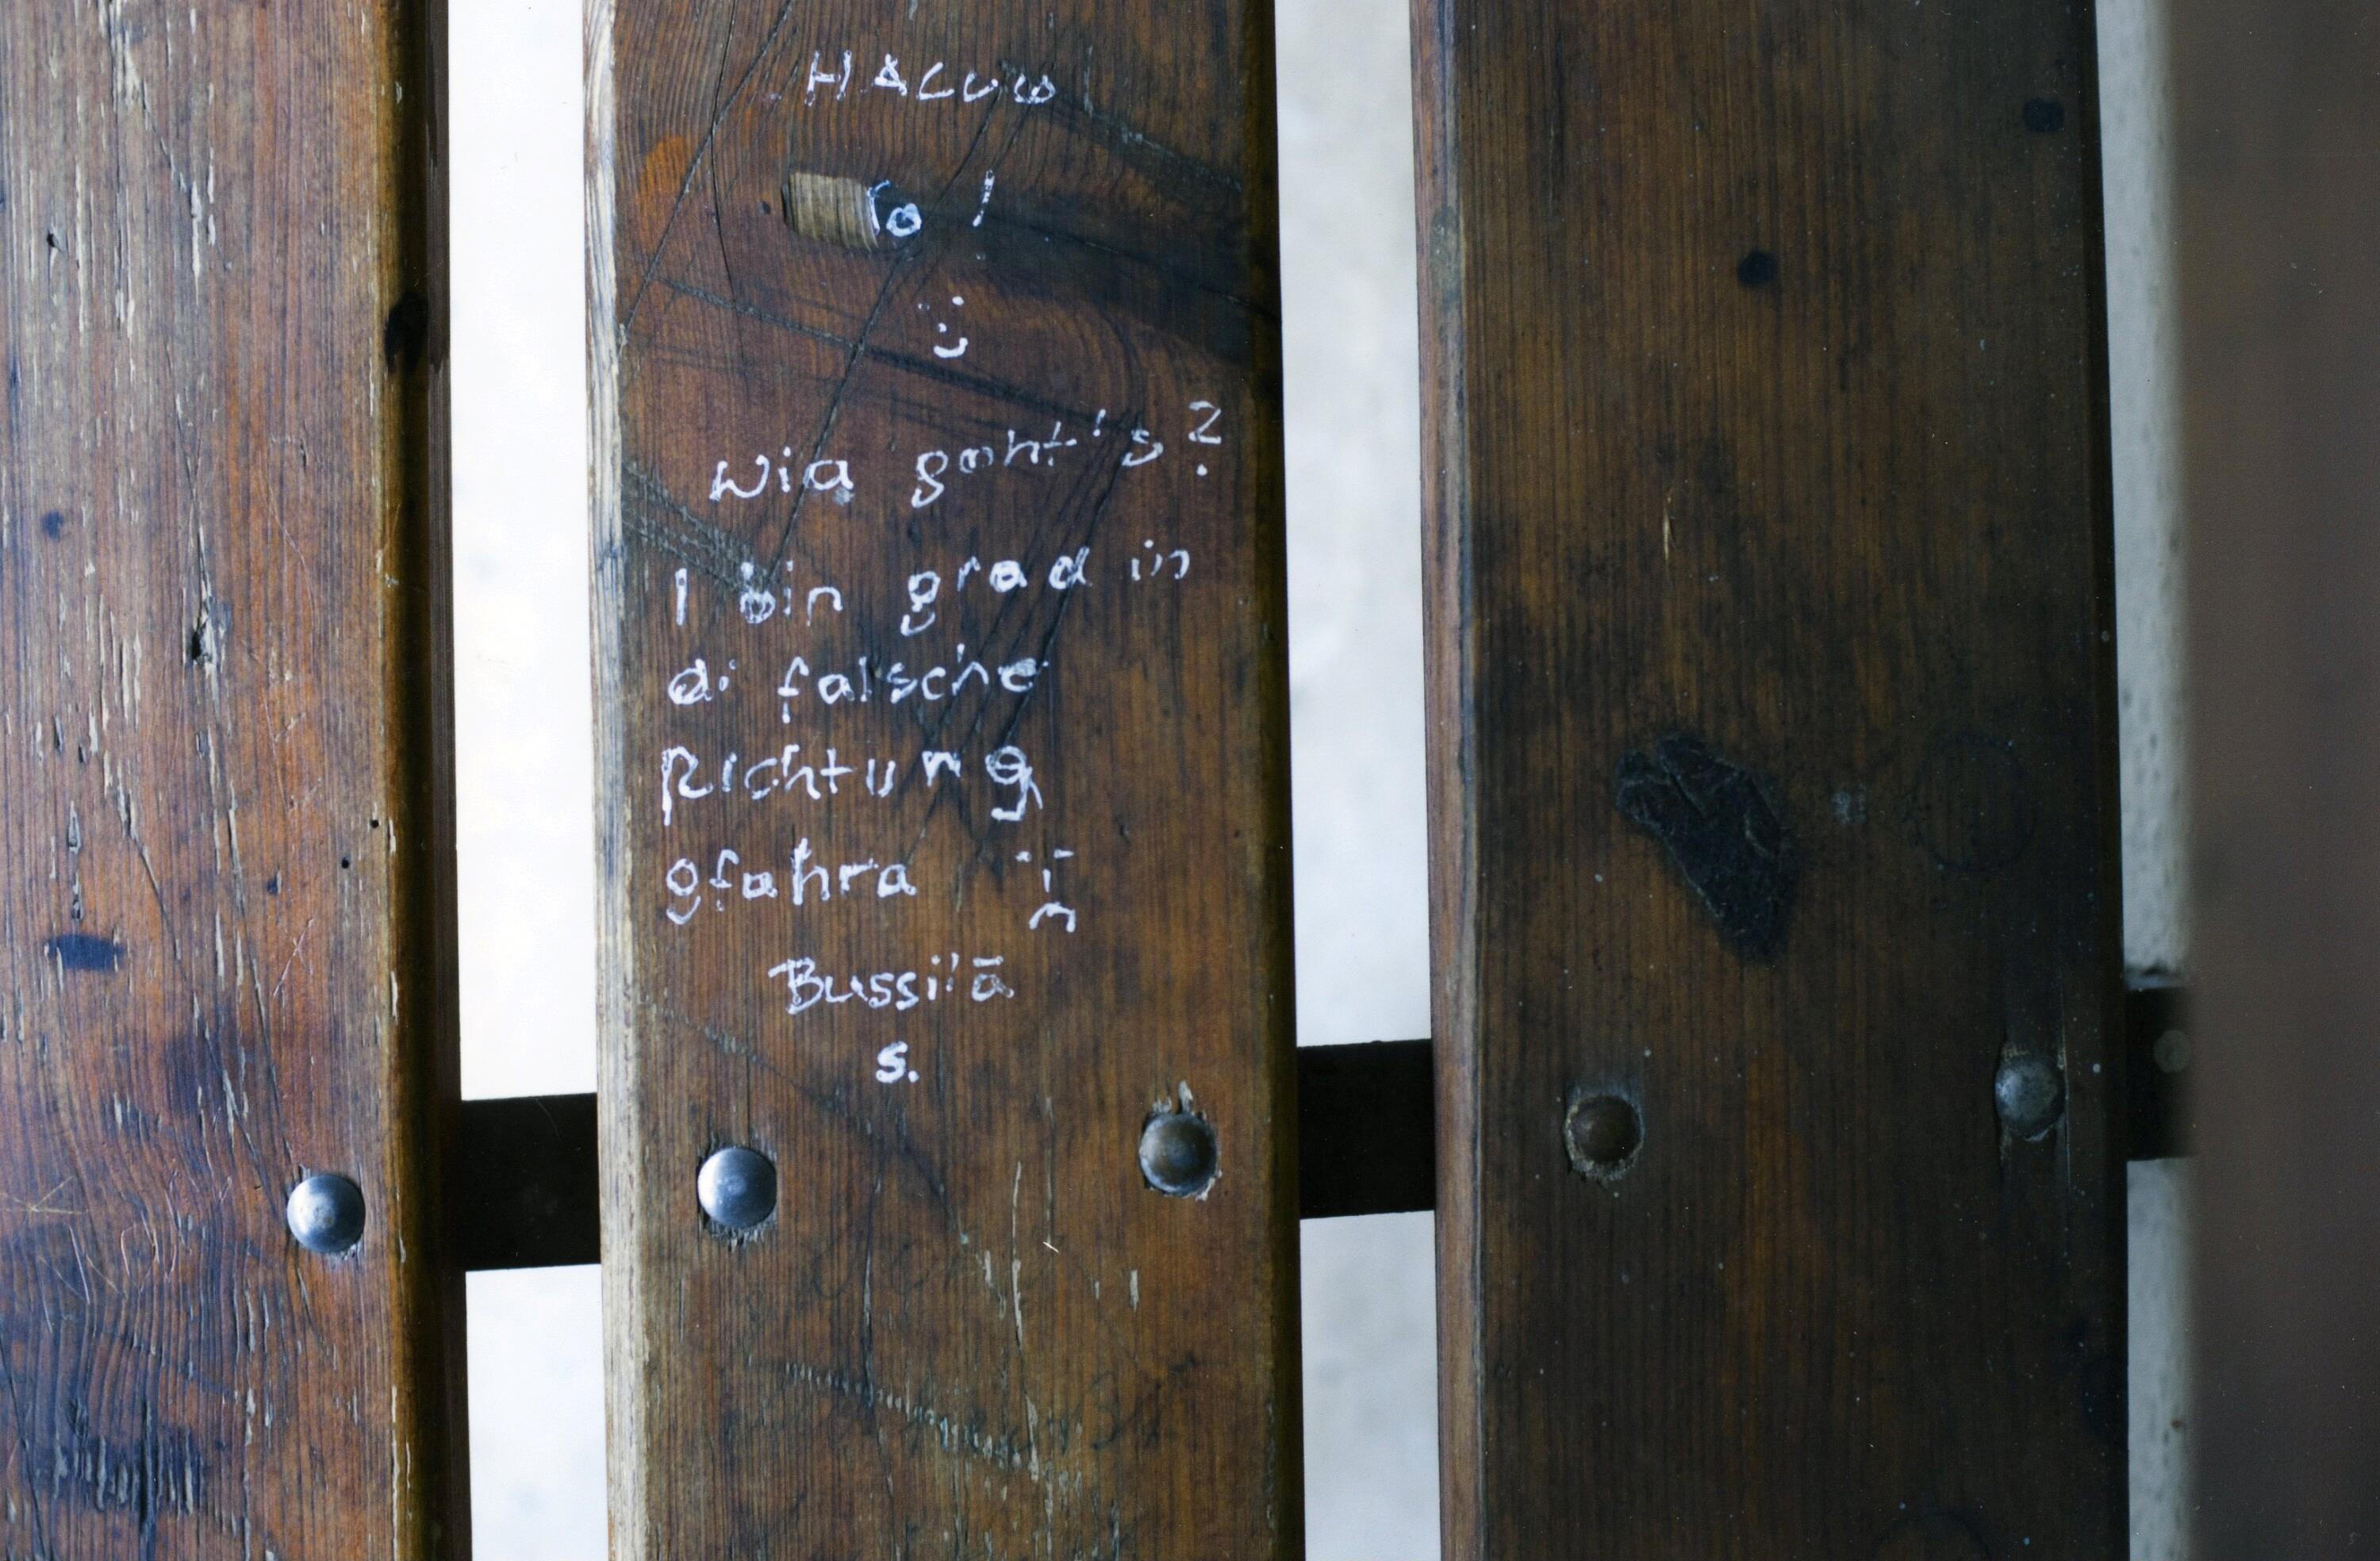 HALLO
!
:)
Wia goht's?
I bin grad in
di falsche
Richtung
gfahra :(
Bussilā
S.